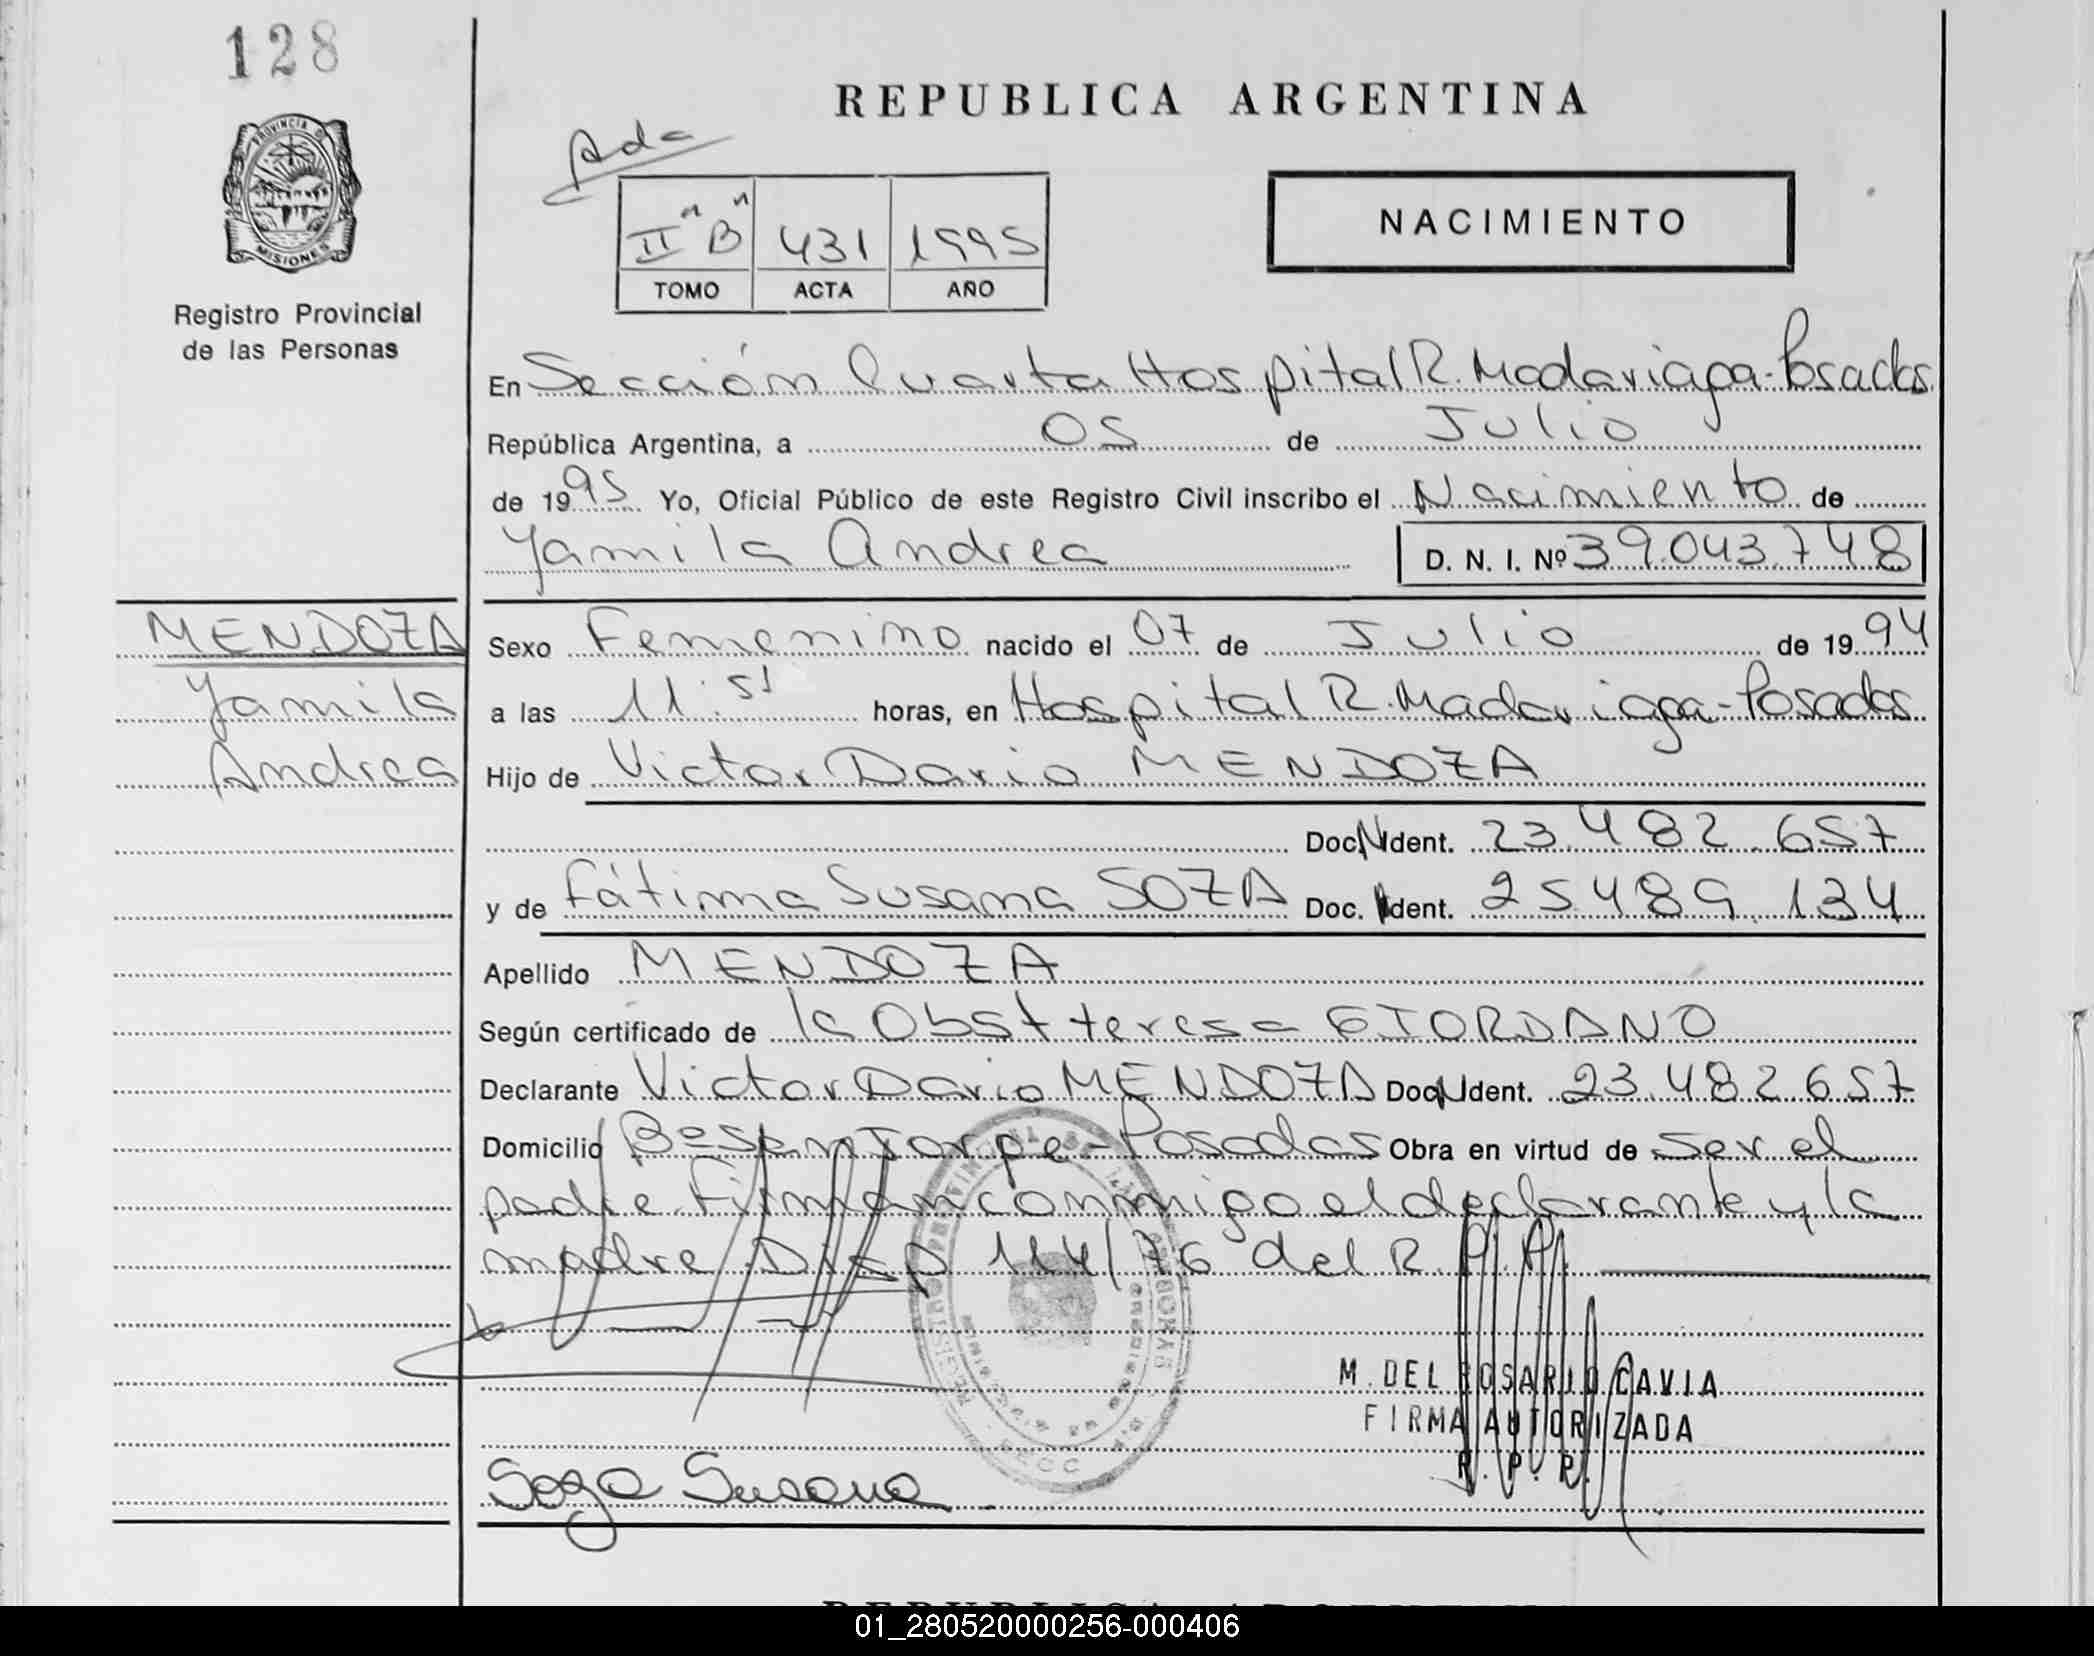 128
REPUBLICA ARGENTINA
Ada
PROVINCIA DE
MISIONES
Registro Provincial
de las Personas
II "B" 431 1995
TOMO ACTA AÑO
NACIMIENTO
En Sección Cuarta Hospital R. Madariaga-Posadas
República Argentina, a 05 de Julio
de 1995 Yo, Oficial Público de este Registro Civil inscribo el Nacimiento de
Yamila Andrea D. N. I. Nº 39.043.748
MENDOZA
Yamila
Andrea
Sexo Femenino nacido el 07 de Julio de 1994
a las 11:51 horas, en Hospital R. Madariaga-Posadas
Hijo de Victor Dario MENDOZA
Doc. N Ident. 23.482.657
y de Fátima Susana SOZA Doc. Ident. 25.489.134
Apellido MENDOZA
Según certificado de la Obst teresa GIORDANO
Declarante Victor Dario MENDOZA Doc N Ident. 23.482.657
Domicilio Bº Posadas Obra en virtud de ser el
padre Firman conmigo el declarante y la
madre Disp 114/76 del R.P.P.
M. DEL ROSARIO CAVIA
FIRMA AUTORIZADA
R. P. P.
Soza Susana
REPUBLICA ARGENTINA
01_280520000256-000406